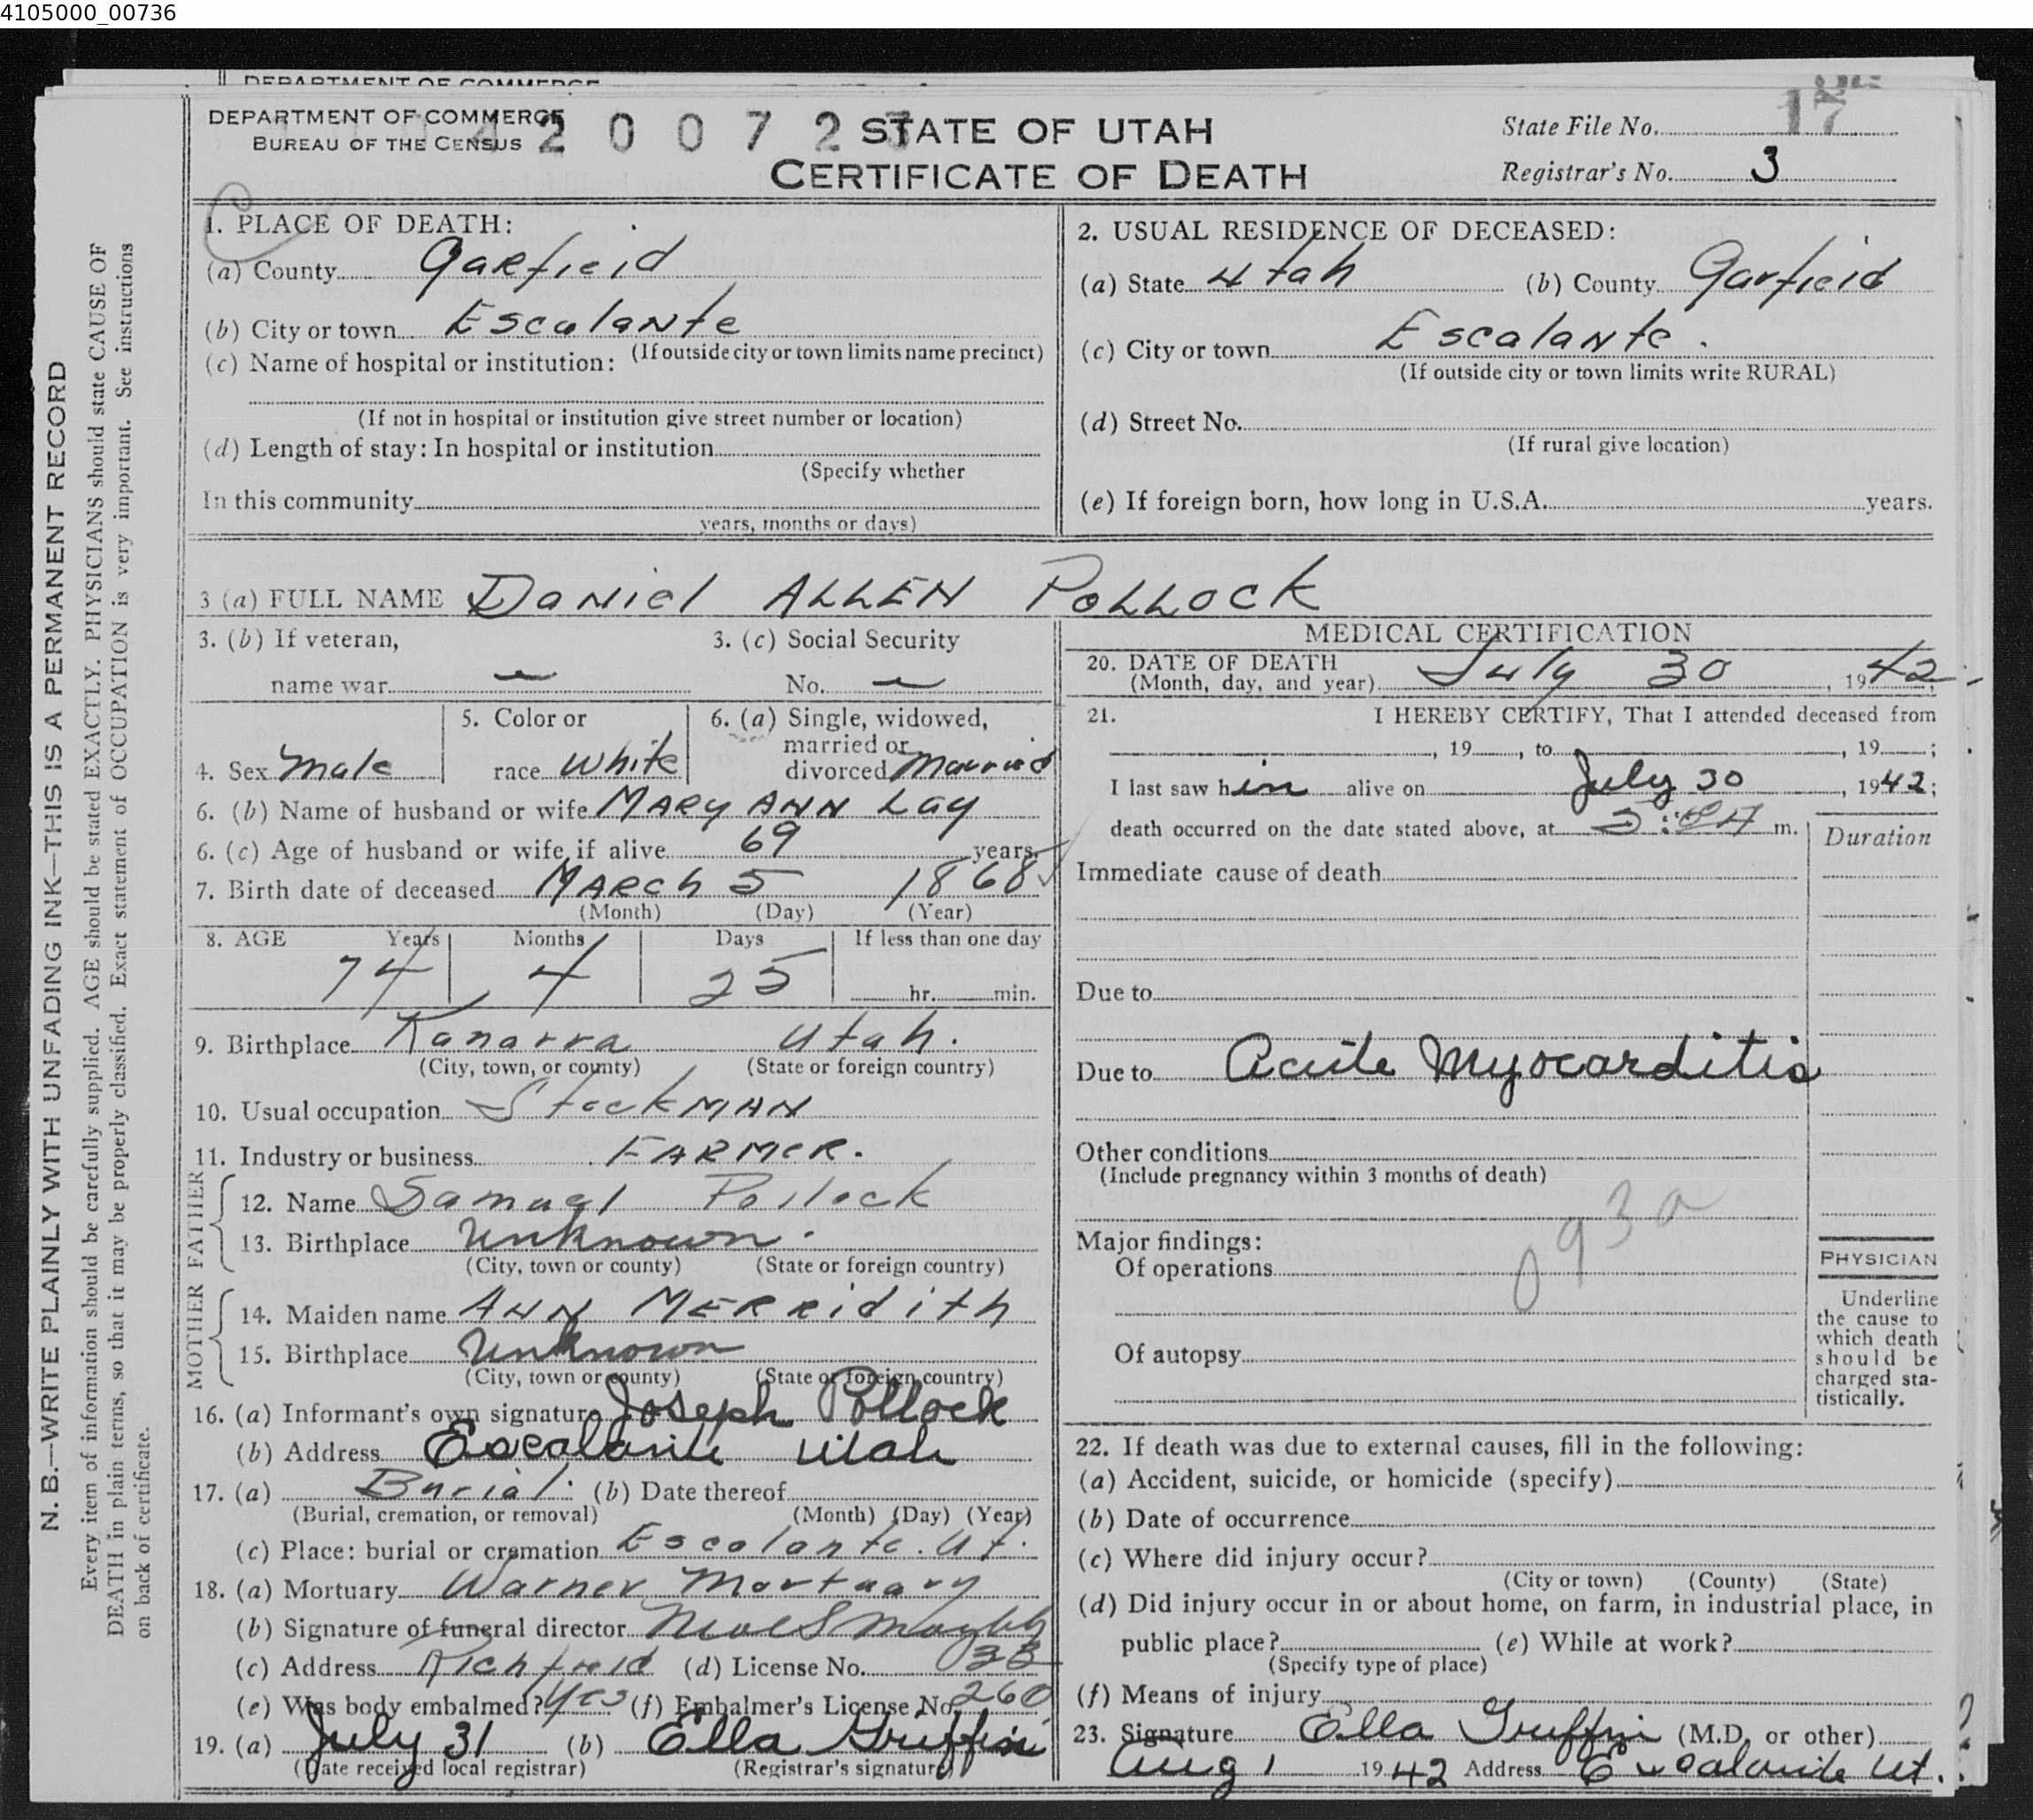 4105000_00736
DEPARTMENT OF COMMERCE
DEPARTMENT OF COMMERCE
BUREAU OF THE CENSUS
4 2 0 0 7 2
STATE OF UTAH
CERTIFICATE OF DEATH
State File No. 17
Registrar's No. 3
N. B.—WRITE PLAINLY WITH UNFADING INK—THIS IS A PERMANENT RECORD
Every item of information should be carefully supplied. AGE should be stated EXACTLY. PHYSICIANS should state CAUSE OF
DEATH in plain terms, so that it may be properly classified. Exact statement of OCCUPATION is very important. See instructions
on back of certificate.
1. PLACE OF DEATH:
(a) County Garfield
(b) City or town Escalante
(If outside city or town limits name precinct)
(c) Name of hospital or institution:
(If not in hospital or institution give street number or location)
(d) Length of stay: In hospital or institution
(Specify whether
In this community
years, months or days)
2. USUAL RESIDENCE OF DECEASED:
(a) State Utah (b) County Garfield
(c) City or town Escalante.
(If outside city or town limits write RURAL)
(d) Street No.
(If rural give location)
(e) If foreign born, how long in U.S.A. years.
3 (a) FULL NAME Daniel ALLEN POLLOCK
3. (b) If veteran,
name war
3. (c) Social Security
No.
4. Sex Male
5. Color or
race White
6. (a) Single, widowed,
married or
divorced Married
6. (b) Name of husband or wife MARY ANN Lay
6. (c) Age of husband or wife if alive 69 years
7. Birth date of deceased MARCh 5 1868
(Month) (Day) (Year)
8. AGE Years Months Days If less than one day
74 4 25 hr. min.
9. Birthplace Kanarra Utah.
(City, town, or county) (State or foreign country)
10. Usual occupation StockMAN
11. Industry or business FARMER.
FATHER
12. Name Samuel Pollock
13. Birthplace Unknown.
(City, town or county) (State or foreign country)
MOTHER
14. Maiden name ANN MERRidith
15. Birthplace Unknown
(City, town or county) (State or foreign country)
16. (a) Informant's own signature Joseph Pollock
(b) Address Escalante Utah
17. (a) Burial. (b) Date thereof
(Burial, cremation, or removal) (Month) (Day) (Year)
(c) Place: burial or cremation Escalante. Ut.
18. (a) Mortuary Warner Mortuary
(b) Signature of funeral director
(c) Address Richfield (d) License No. 33
(e) Was body embalmed? Yes (f) Embalmer's License No. 260
19. (a) July 31 (b) Ella Griffin
(Date received local registrar) (Registrar's signature)
MEDICAL CERTIFICATION
20. DATE OF DEATH
(Month, day, and year) July 30, 1942.
21. I HEREBY CERTIFY, That I attended deceased from
, 19 , to , 19 ;
I last saw him alive on July 30, 1942;
death occurred on the date stated above, at m.
Duration
Immediate cause of death
Due to
Due to Acute Myocarditis
Other conditions
(Include pregnancy within 3 months of death)
093a
Major findings:
Of operations
Of autopsy
PHYSICIAN
Underline
the cause to
which death
should be
charged sta-
tistically.
22. If death was due to external causes, fill in the following:
(a) Accident, suicide, or homicide (specify)
(b) Date of occurrence
(c) Where did injury occur?
(City or town) (County) (State)
(d) Did injury occur in or about home, on farm, in industrial place, in
public place? (e) While at work?
(Specify type of place)
(f) Means of injury
23. Signature Ella Griffin (M.D. or other)
Aug 1 1942 Address Escalante Ut.